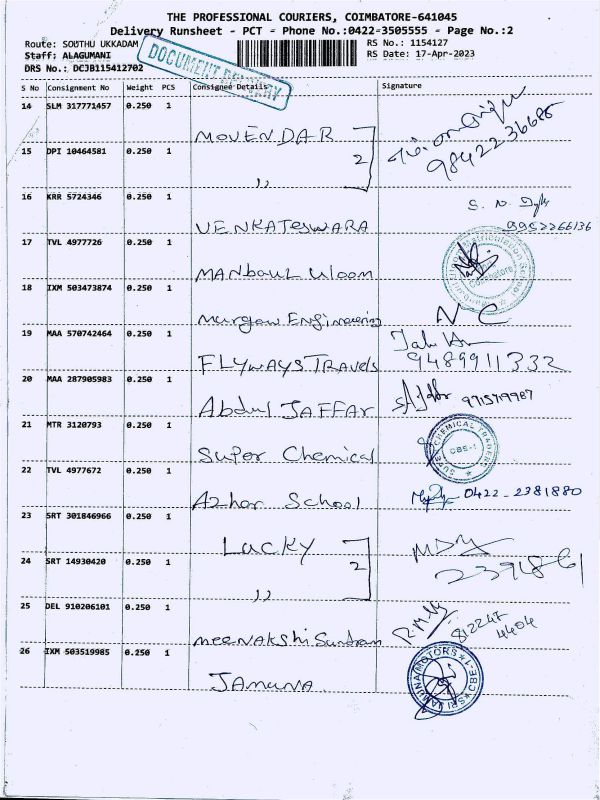 THE PROFESSIONAL COURIERS, COIMBATORE-641045
Delivery Runsheet - PCT - Phone No.:0422-3505555 - Page No.:2
Route: SOUTHU UKKADAM RS No.: 1154127
Staff: ALAGUMANI RS Date: 17-Apr-2023
DRS No.: DCJB115412702
DOCUMENT DELIVERY
S No Consignment No Weight PCS Consignee Details Signature
14 SLM 317771457 0.250 1
MOVENDAR 2 98422 36688
15 DPI 10464581 0.250 1
,,
16 KRR 5724346 0.250 1
VENKATESWARA 9952266136
17 TVL 4977726 0.250 1
MANbaul Uloom Coimbatore
18 IXM 503473874 0.250 1
murgaw Engineering N C
19 MAA 570742464 0.250 1
FLYWAYS TRAVELS 9489911332
20 MAA 287905983 0.250 1
Abdul JAFFAR 9715719987
21 MTR 3120793 0.250 1
Super Chemical SUPER CHEMICAL TRADERS CBE-1
22 TVL 4977672 0.250 1
Azhar School 0422-2381880
23 SRT 301846966 0.250 1
Lucky 2
24 SRT 14930420 0.250 1
,,
25 DEL 910206101 0.250 1
meenakshi Sundram 812247 4404
26 IXM 503519985 0.250 1
JAMUNA SRI JAMUNA MOTORS CBE-1